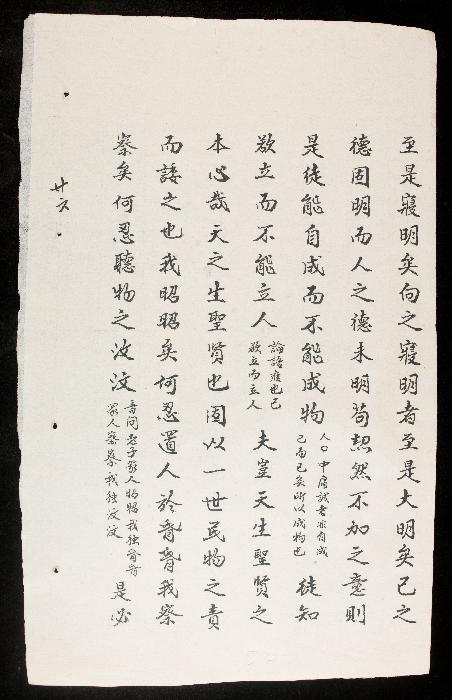 至是寢明矣向之寢明者至是大明矣己之
德固明而人之德未明苟恝然不加之意則
是徒能自成而不能成物
人〇中庸誠者非自成
己而已矣所以成物也
徒知
欲立而不能立人
論語雍也己
欲立而立人
夫豈天生聖賢之
本心哉天之生聖賢也固以一世民物之責
而諉之也我昭昭矣何忍置人於昏昏我察
察矣何忍聽物之汶汶
音問老子眾人昭昭我獨昏昏
眾人察察我獨汶汶
是必
廿六